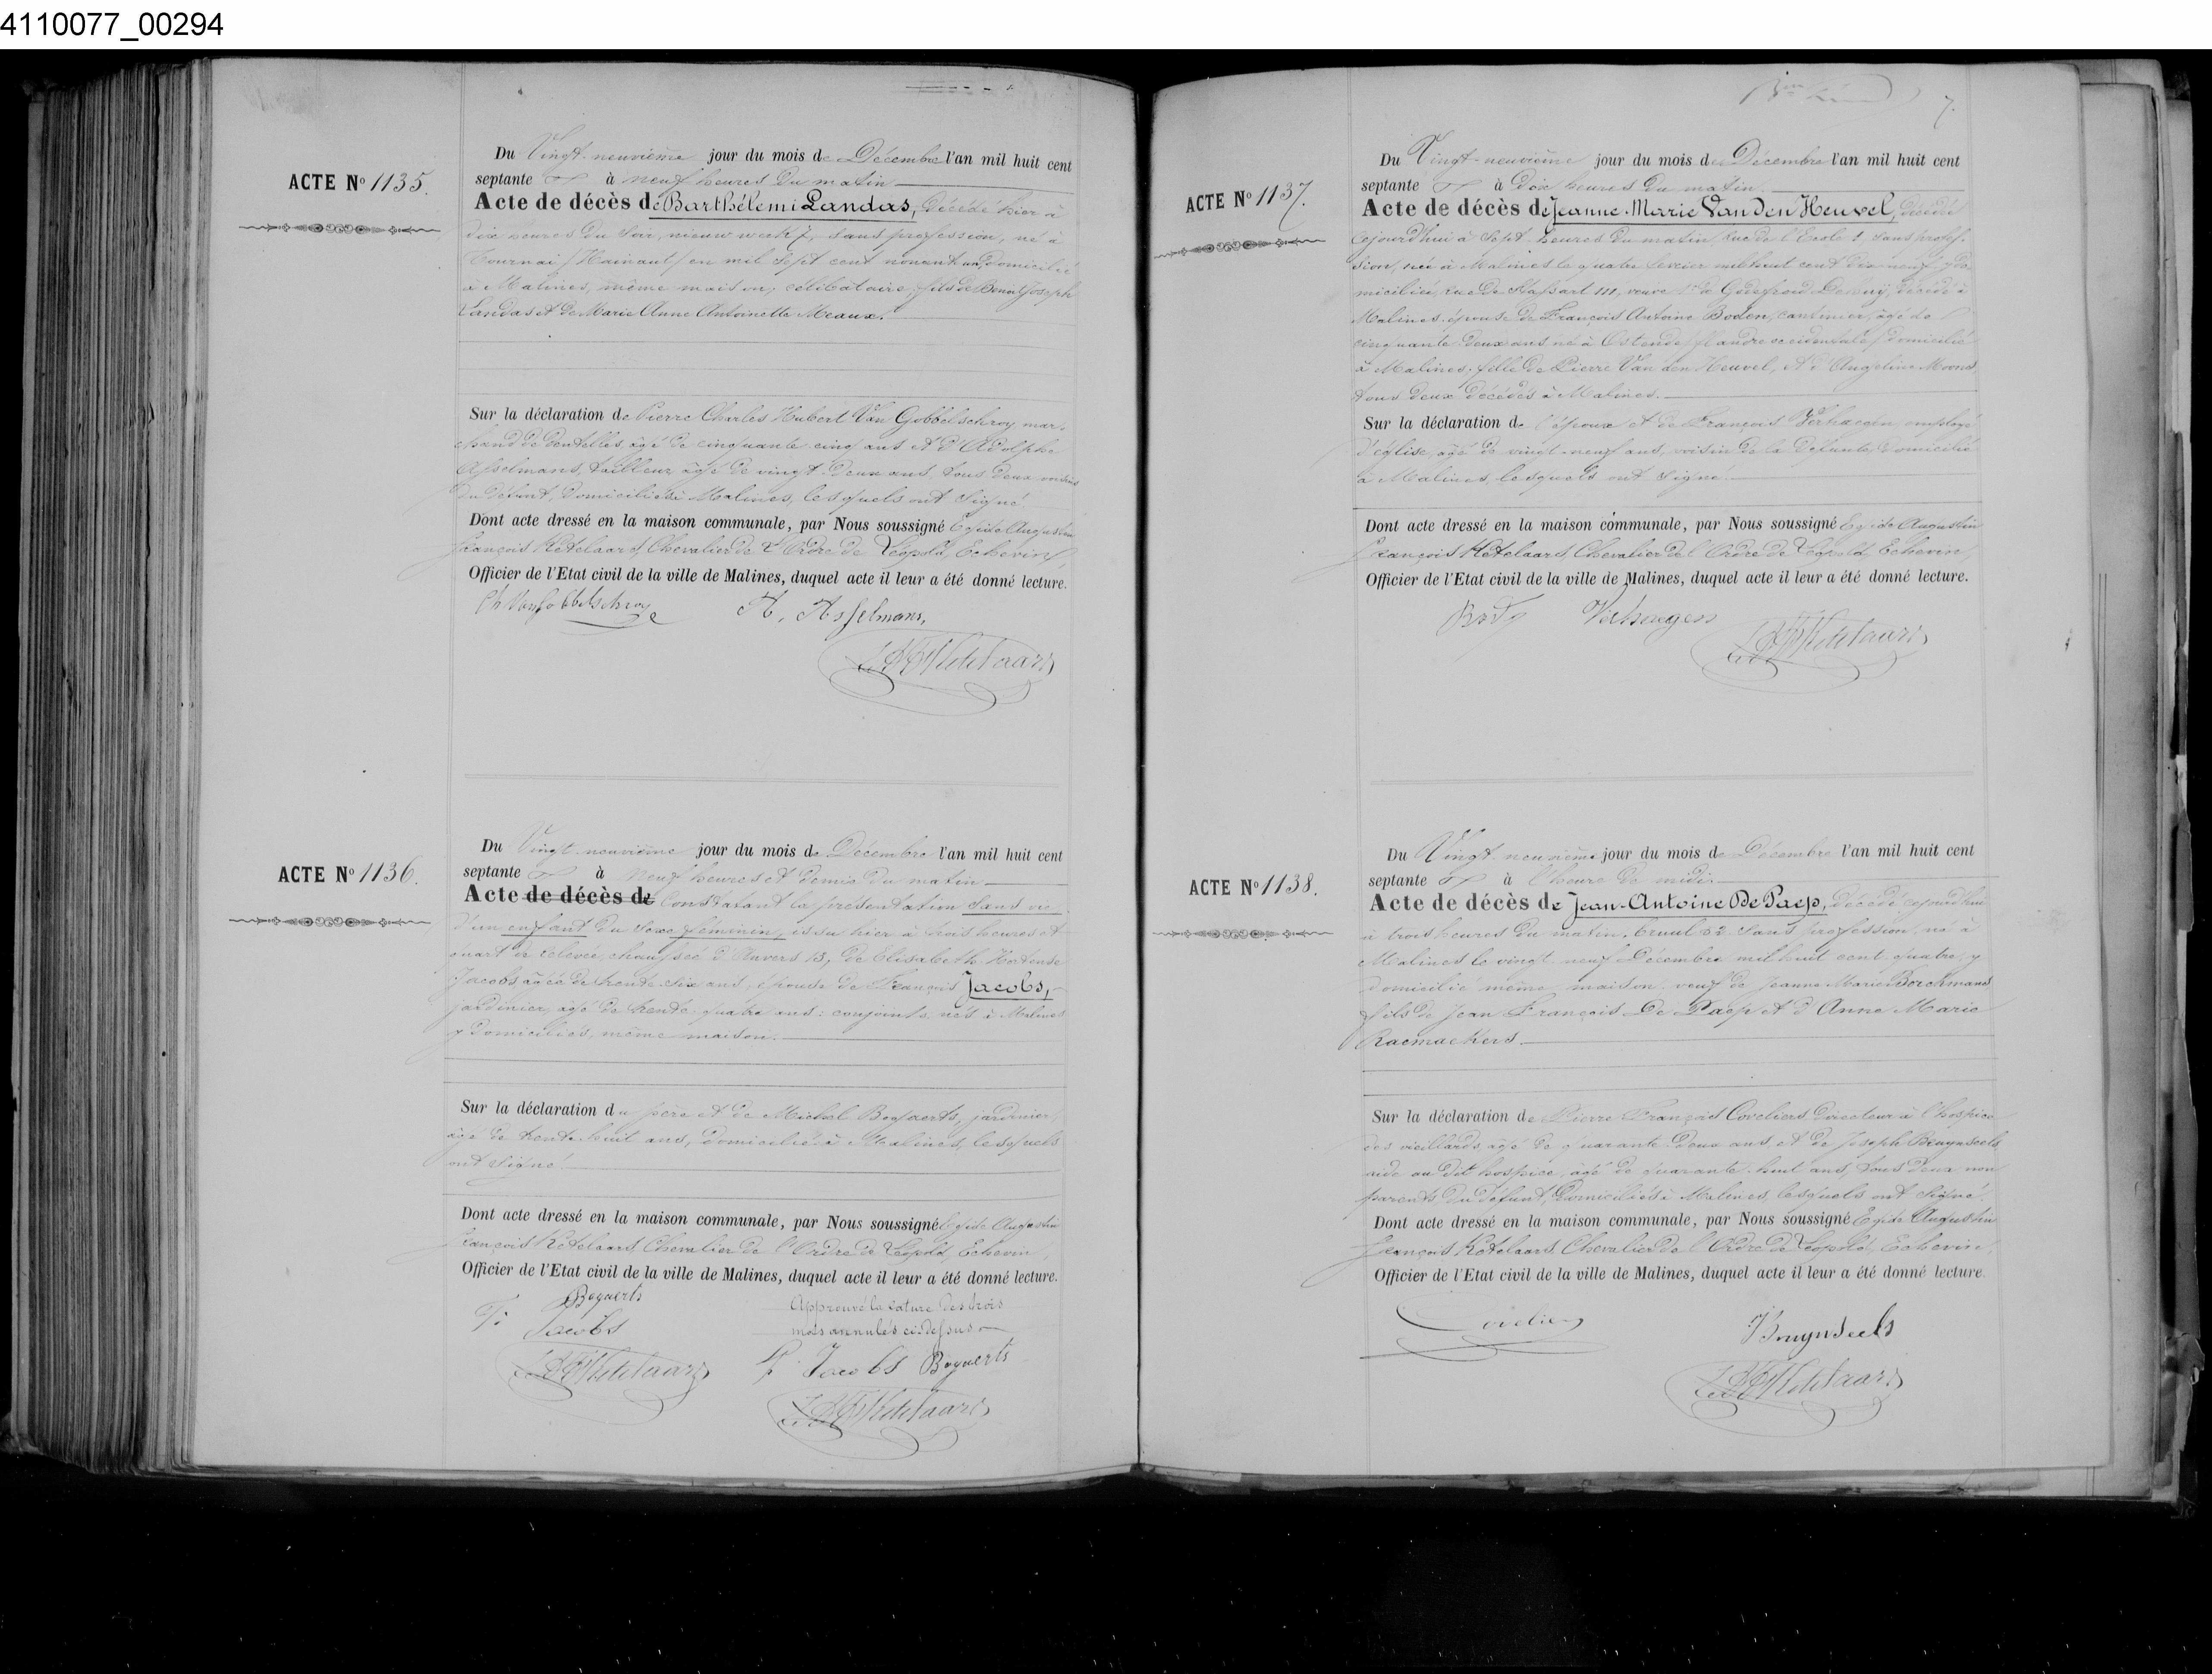 4110077_00294
ACTE No 1135.
Du Vingt-neuvième jour du mois de Décembre l'an mil huit cent
septante à neuf heures du matin
Acte de décès de Barthélemi Landas, décédé hier à
dix heures du soir, nieuw werk 7, sans profession, né à
Tournai (Hainaut) en mil sept cent nonante un, domicilié
à Malines, même maison; célibataire, fils de Benoit Joseph
Landas et de Marie Anne Antoinette Meaux.
Sur la déclaration de Pierre Charles Hubert Van Gobbelschroy mar-
chand de dentelles, âgé de cinquante cinq ans et d'Adolphe
Asselmans, tailleur, âgé de vingt-deux ans, tous deux voisins
du défunt, domiciliés à Malines, lesquels ont signé.
Dont acte dressé en la maison communale, par Nous soussigné Egide Augustin
François Ketelaars, Chevalier de l'Ordre de Léopold, Echevin,
Officier de l'Etat civil de la ville de Malines, duquel acte il leur a été donné lecture.
Ch Van Gobbelschroy A. Asselmans,
Ketelaars
ACTE No 1136.
Du Vingt-neuvième jour du mois de Décembre l'an mil huit cent
septante à neuf heures et demie du matin
Acte de décès de Constatant la présentation sans vie
d'un enfant du sexe féminin, issu hier à trois heures et
quart de relevée, chaussée d'Anvers 13, de Elisabeth Hortense
Jacobs, âgée de trente-six ans, épouse de François Jacobs,
jardinier, âgé de trente-quatre ans: conjoints nés à Malines
y domiciliés, même maison.
Sur la déclaration du père et de Michel Bogaerts, jardinier,
âgé de trente-huit ans, domicilié à Malines, lesquels
ont signé.
Dont acte dressé en la maison communale, par Nous soussigné Egide Augustin
François Ketelaars, Chevalier de l'Ordre de Léopold, Echevin,
Officier de l'Etat civil de la ville de Malines, duquel acte il leur a été donné lecture.
Bogaerts
Jacobs
Ketelaars
Approuvé la rature des trois
mots annulés ci-dessus
Jacobs Bogaerts
Ketelaars
7.
ACTE No 1137.
Du Vingt-neuvième jour du mois de Décembre l'an mil huit cent
septante à Dix heures du matin
Acte de décès de Jeanne-Marie Van Den Heuvel, décédée
cejourd'hui à sept heures du matin, Rue de l'Ecole 1, sans profes-
sion, née à Malines le quatre février mil huit cent dix-neuf y do-
miciliée, rue De Stassart 111, veuve de Godefroid, décédé à
Malines, épouse de François Antoine Boden, cantinier, âgé de
cinquante-deux ans né à Ostende (Flandre occidentale) domicilié
à Malines, fille de Pierre Van den Heuvel, et d'Angeline Moons,
tous deux décédés à Malines.
Sur la déclaration de l'époux et de François Verhaegen employé
d'église, âgé de vingt-neuf ans, voisin de la défunte, domicilié
à Malines, lesquels ont signé.
Dont acte dressé en la maison communale, par Nous soussigné Egide Augustin
François Ketelaars, Chevalier de l'Ordre de Léopold, Echevin,
Officier de l'Etat civil de la ville de Malines, duquel acte il leur a été donné lecture.
Verhaegen
Ketelaars
ACTE No 1138.
Du Vingt-neuvième jour du mois de Décembre l'an mil huit cent
septante à l'heure de midi
Acte de décès de Jean-Antoine De Paep, décédé cejourd'hui
à trois heures du matin, Bruul 52, sans profession, né à
Malines le vingt-neuf Décembre mil huit cent quatre, y
domicilié même maison, veuf de Jeanne Marie Borckmans
fils de Jean François De Paep et d'Anne Marie
Raemaekers.
Sur la déclaration de Pierre François Coveliers Directeur à l'hospice
des vieillards, âgé de quarante-deux ans, et de Joseph Bruynseels
aide au dit hospice, âgé de quarante-huit ans, tous deux non
parents du défunt, Domiciliés à Malines, lesquels ont signé.
Dont acte dressé en la maison communale, par Nous soussigné Egide Augustin
François Ketelaars, Chevalier de l'Ordre de Léopold, Echevin,
Officier de l'Etat civil de la ville de Malines, duquel acte il leur a été donné lecture.
Coveliers Bruynseels
Ketelaars